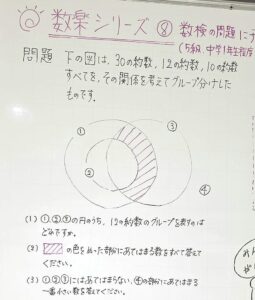 数楽シリーズ ⑧ 数検の問題に
(5級 中学1年生程度
問題 下の図は、30の約数、12の約数、10の約数
すべてを、その関係を考えてグループ分けした
ものです。
① ③
②
④
(1) ①、②、③の円のうち、12の約数のグループを表すのは
どれですか。
(2) の色をぬった部分にあてはまる数をすべて答えて
ください。
(3) ①②③にはあてはまらない、④の部分にあてはまる
一番小さい数を答えてください。